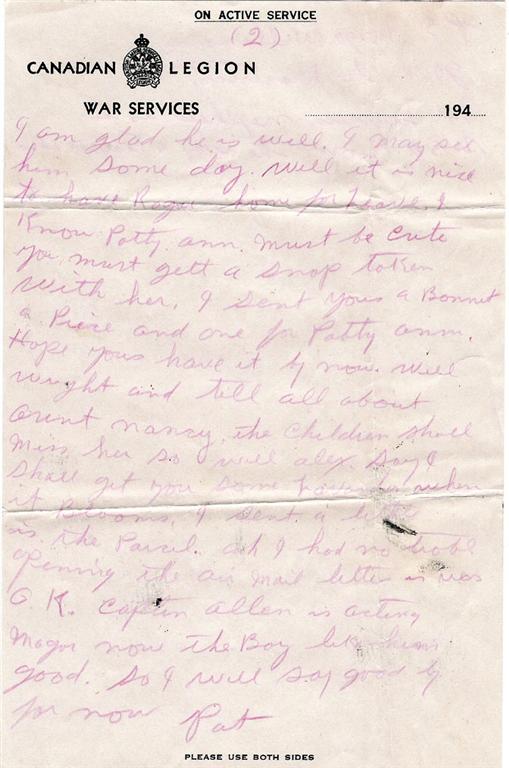 ON ACTIVE SERVICE
(2)
CANADIAN LEGION
WAR SERVICES
194
I am glad he is well. I may see
him some day. Well it is nice
to have Roger home for Leave. I
Know Patty ann. must be cute
you must gett a snap taken
with her. I sent yous a Bonnet
a Piece and one for Patty ann.
Hope yous have it by now. will
wright and tell all about
aunt nancy. the children shall
miss her so will alex. say I
shall get you some when
it Blooms. I sent a
in the Parsil. ah I had no
openning the air mail letter it was
O.K. Captin allen is acting
Magor now the Boy like him
good. so I will say good by
for now Pat
PLEASE USE BOTH SIDES